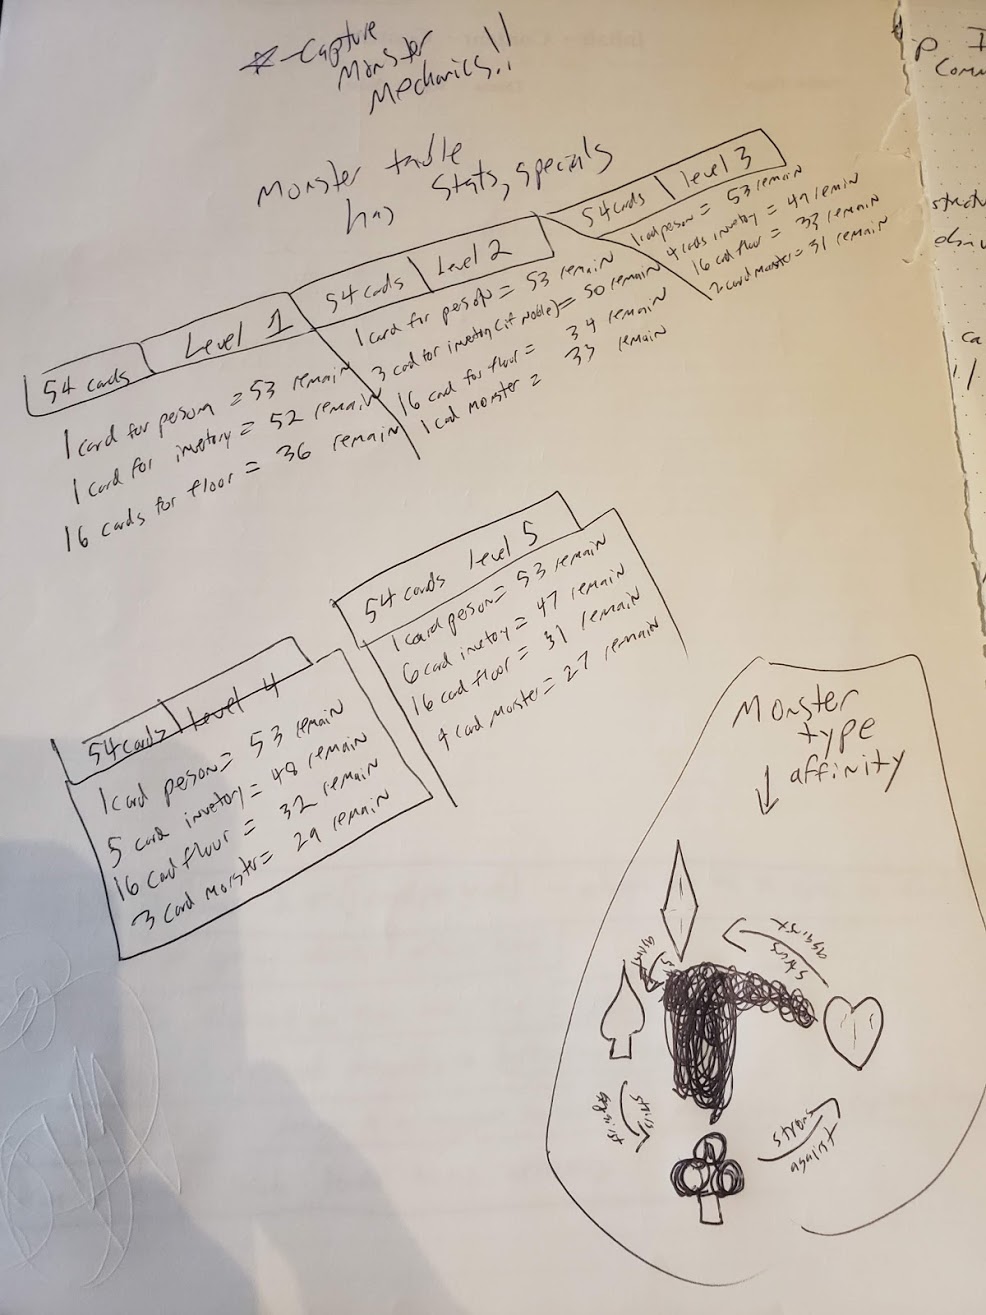 *-Capture
Monster
Mechanics!!
Monster table
has stats, specials
54 cards Level 1
1 card for person = 53 remain
1 card for invetory = 52 remain
16 cards for floor = 36 remain
54 cards Level 2
1 card for person = 53 remain
3 card for invetory (if noble) = 50 remain
16 card for floor = 34 remain
1 card monster = 33 remain
54 cards level 3
1 card person = 53 remain
4 cards invetory = 49 remain
16 card floor = 33 remain
2 card monster = 31 remain
54 cards Level 4
1 card person = 53 remain
5 card invetory = 48 remain
16 card floor = 32 remain
3 card monster = 29 remain
54 cards level 5
1 card person = 53 remain
6 card invetory = 47 remain
16 card floor = 31 remain
4 card monster = 27 remain
Monster
type
affinity
strong
against
strong
against
strong
against
strong
against